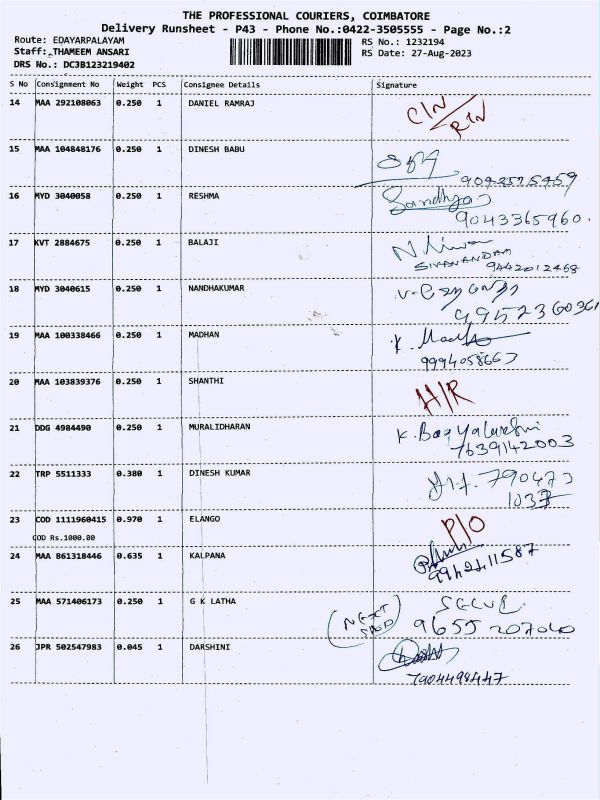 THE PROFESSIONAL COURIERS, COIMBATORE
Delivery Runsheet - P43 - Phone No.:0422-3505555 - Page No.:2
Route: EDAYARPALAYAM RS No.: 1232194
Staff: THAMEEM ANSARI RS Date: 27-Aug-2023
DRS No.: DC3B123219402
S No Consignment No Weight PCS Consignee Details Signature
14 MAA 292108063 0.250 1 DANIEL RAMRAJ C/N
R/N
15 MAA 104848176 0.250 1 DINESH BABU
16 MYD 3040058 0.250 1 RESHMA Sandhya
9043365960.
17 KVT 2884675 0.250 1 BALAJI
SIVANANDAM
9442012468
18 MYD 3040615 0.250 1 NANDHAKUMAR
9952360361
19 MAA 100338466 0.250 1 MADHAN K. Madh
9994058663
20 MAA 103839376 0.250 1 SHANTHI H/R
21 DDG 4984490 0.250 1 MURALIDHARAN K. Bagyalakshmi
7639142003
22 TRP 5511333 0.380 1 DINESH KUMAR 790473
1037
23 COD 1111960415 0.970 1 ELANGO P/O
COD Rs.1000.00
24 MAA 861318446 0.635 1 KALPANA 9942411587
25 MAA 571406173 0.250 1 G K LATHA
(NEXT 9655207040
26 JPR 502547983 0.045 1 DARSHINI
7904498447